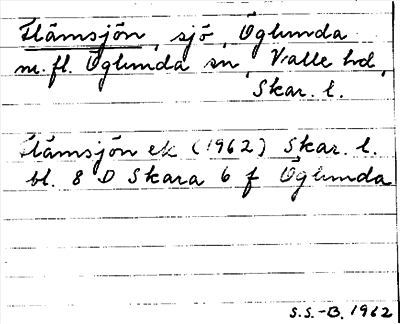 Flämsjön, sjö, Öglunda
m.fl. Öglunda sn, Valle hd,
Skar. l.
Flämsjön ek (1962) Skar. l.
bl. 8 D Skara 6 f Öglunda
S.S.-B. 1962